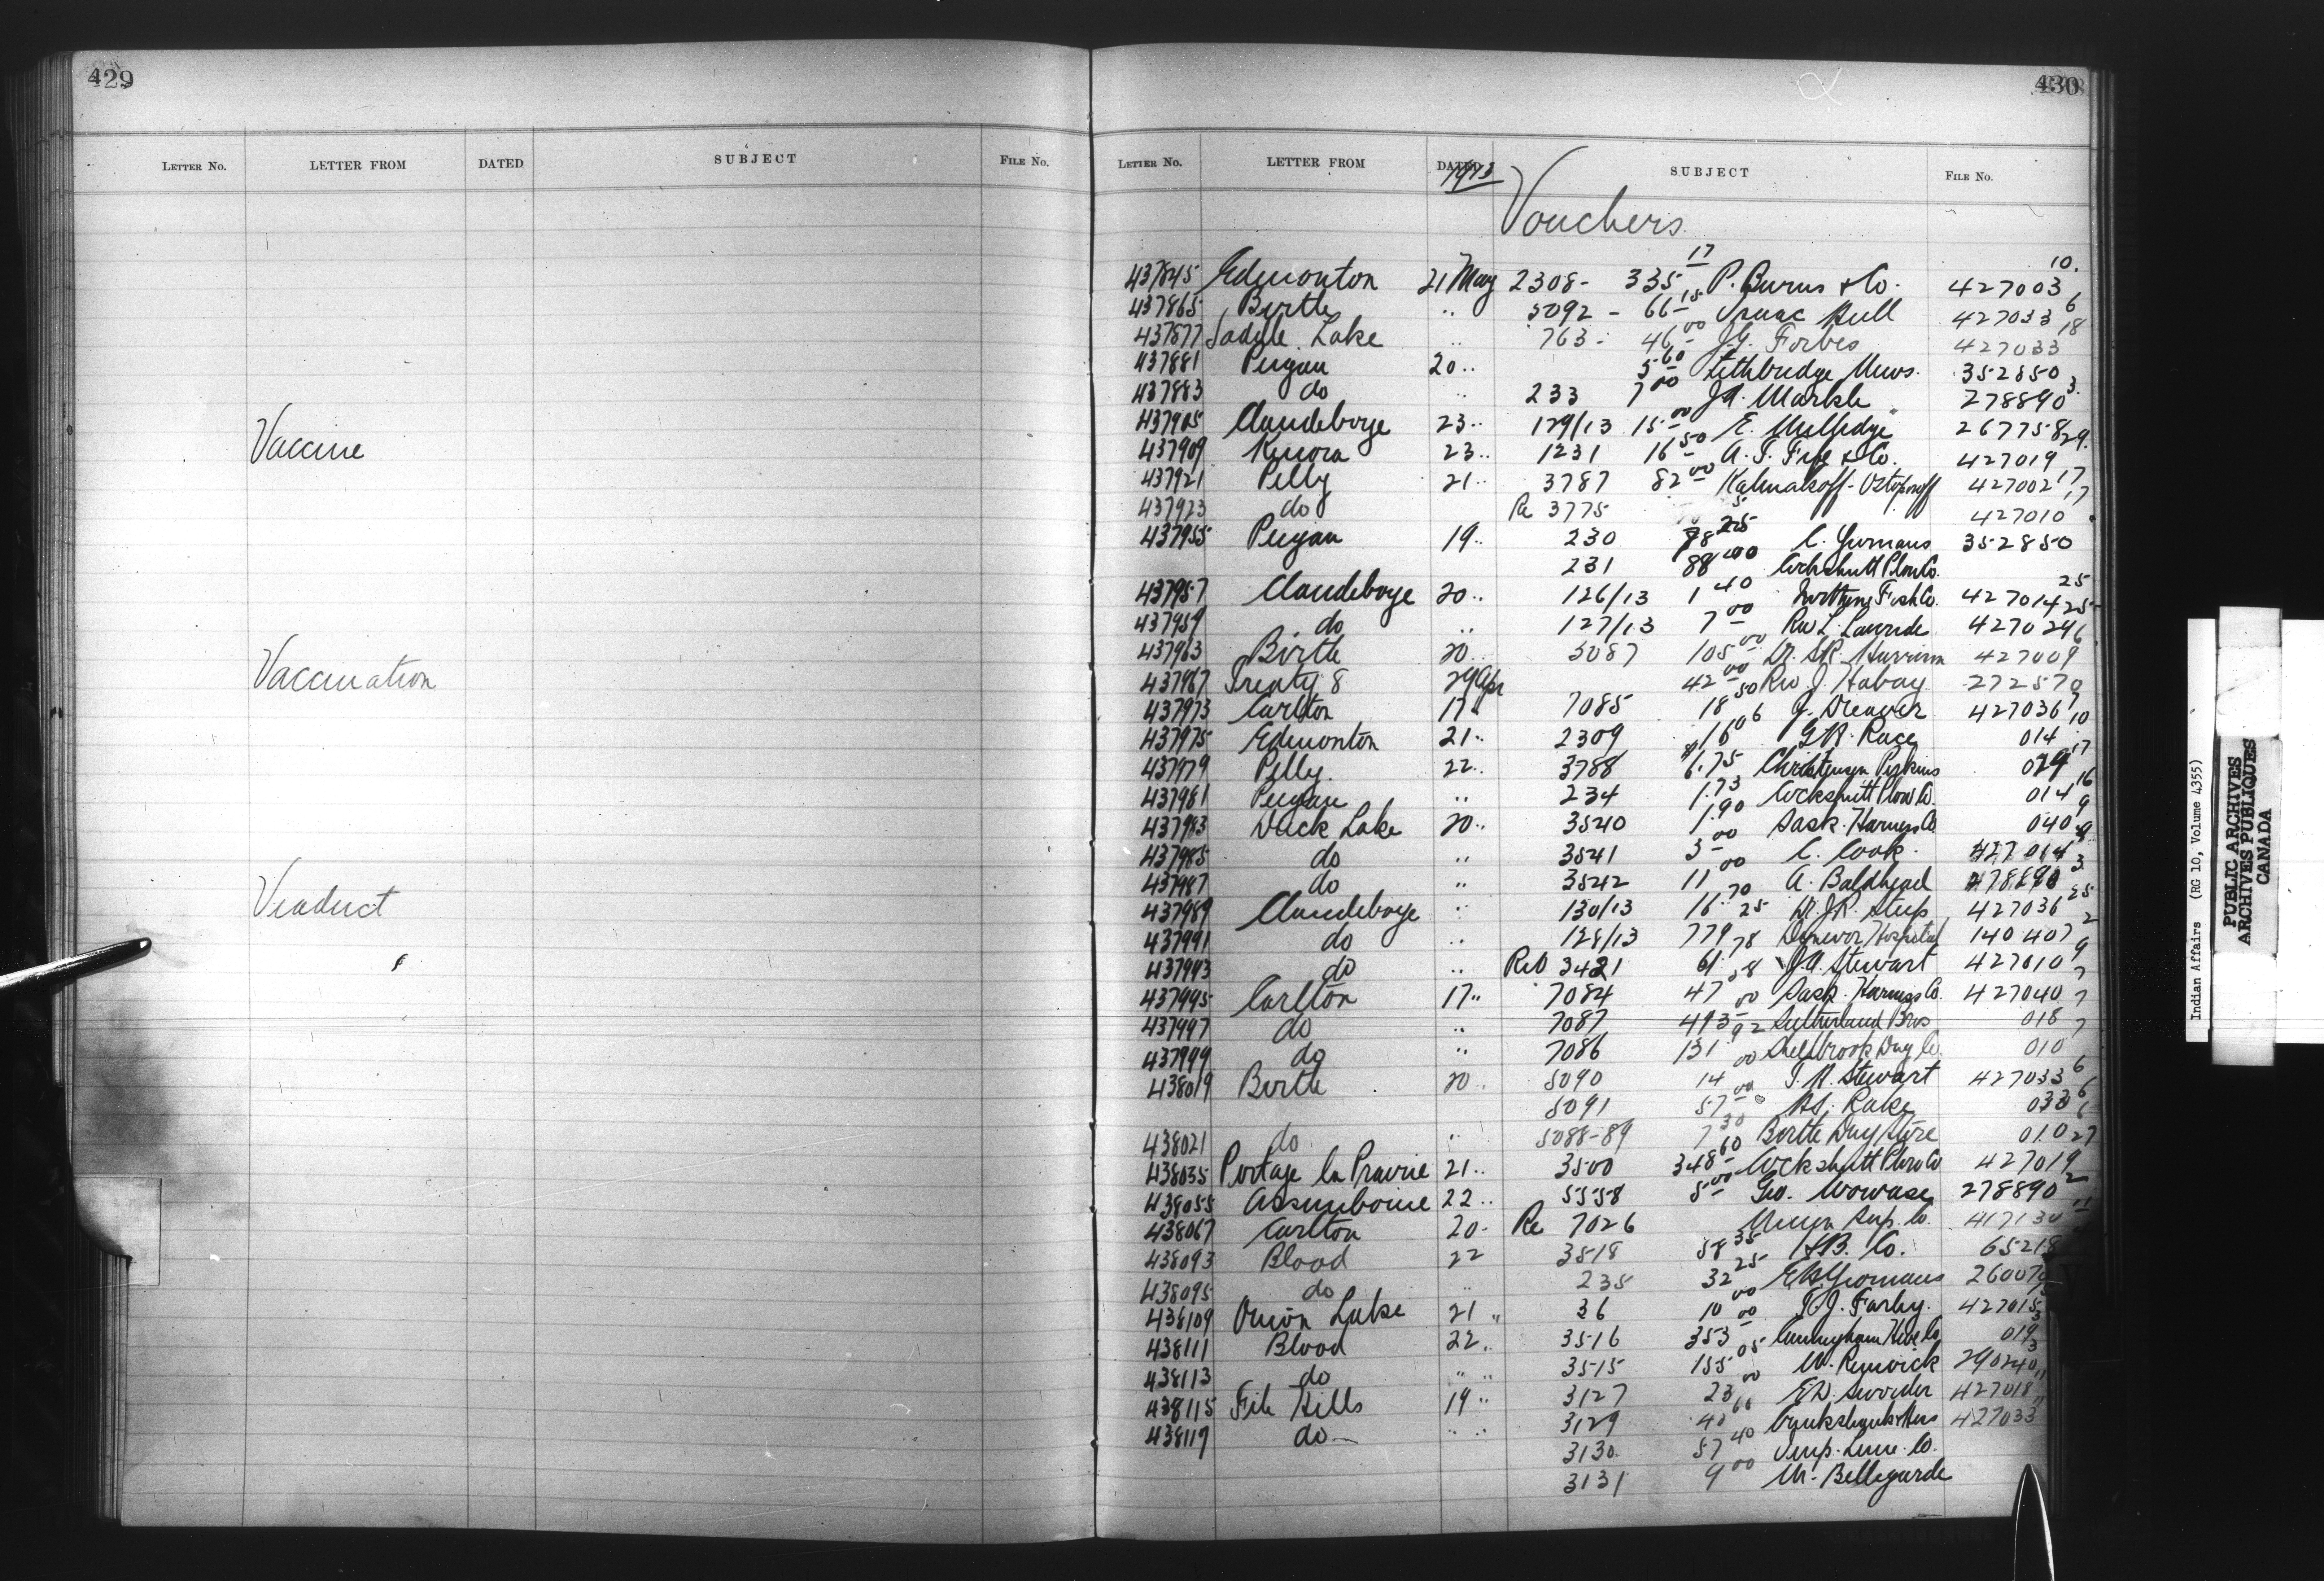 429
LETTER NO. LETTER FROM DATED SUBJECT FILE NO.
Vaccine
Vaccination
Viaduct
430
LETTER NO. LETTER FROM DATED 1913 SUBJECT FILE NO.
Vouchers
437845 Edmonton 21 May 2308 - 335 17 P. Burns & Co. 427003 10
437865 Birtle " 5092 - 66 15 Isaac Hull 427033 6
437877 Saddle Lake " 763 - 46 00 J.G. Forbes 427033 18
437881 Peigan 20 " 5 60 Lethbridge News. 352850
437883 do " 233 7 00 J.A. Markle 278890 3
437905 Clandeboye 23 " 129/13 15 00 E. Milledge 267758
437909 Kenora 23 " 1231 16 50 A.T. Fife & Co. 427019 29
437921 Pelly 21 " 3787 82 00 Kalmakoff - 427002 17
437923 do Re 3775 427010 17
437955 Peigan 19 " 230 78 25 C. Yeomans 352850
231 88 00 Cockshutt Plow Co.
437957 Clandeboye 20 " 126/13 1 40 Northern Fish Co. 427014 25
437959 do " 127/13 7 00 Rev L. 427029 25
437963 Birtle 20 " 5087 105 00 Dr. Harrison 427009 6
437967 Treaty 8 29 Apr 42 00 Rev J. Habay 272570
437973 Carlton 17 " 7085 18 50 J. Dreaver 427036 7
437975 Edmonton 21 " 2309 16 06 G.H. Race 014 10
437979 Pelly 22 " 3788 6.75 Christensen Perkins 029 17
437981 Peigan " 234 1.73 Cockshutt Plow Co. 014 16
437983 Duck Lake 20 " 3540 1.90 Sask. Harness Co 040 9
437985 do " 3541 3 00 C. Cook 427014 9
437987 do " 3542 11 00 A. Baldhead 278890 3
437989 Clandeboye " 130/13 16 70 Dr. J.R. Steep 427036 25
437991 do " 128/13 779 25 Dynevor Hospital 140407 2
437993 do " Re 3421 61 78 J.A. Stewart 427010 9
437995 Carlton 17 " 7084 47 58 Sask. Harness Co. 427040 7
437997 do " 7087 493 00 Sutherland Bros 018 7
437999 do " 7086 131 92 Shellbrook Drug Co. 010 7
438019 Birtle 20 " 5090 14 00 T.H. Stewart 427033 6
5091 57 00 Rake 033 6
438021 do " 5088-89 7 30 Birtle Drug Store 010 6
438035 Portage la Prairie 21 " 3500 348 60 Cockshutt Plow Co 427019 27
438055 Assiniboine 22 " 5558 5 00 Geo. Wowase 278890 2
438067 Carlton 20 - Re 7026 Union Sup. Co. 417130
438093 Blood 22 3518 58 35 H.B. Co. 65218
438095 do " 235 32 25 Yeomans 26007
438109 Onion Lake 21 " 36 10 00 T.J. Farley. 427015
438111 Blood 22 " 3516 353 00 Cunningham Hdwe Co 019 3
438113 do " " 3515 155 05 W. Renwick 290240 3
438115 File Hills 19 " 3127 23 00 E.D. Sworder 427018 11
438117 do - " " 3129 40 60 427033 11
3130 57 40 Imp. Lum. Co.
3131 9 00 M. Bellegarde
Indian Affairs (RG 10, Volume 4355)
PUBLIC ARCHIVES
ARCHIVES PUBLIQUES
CANADA